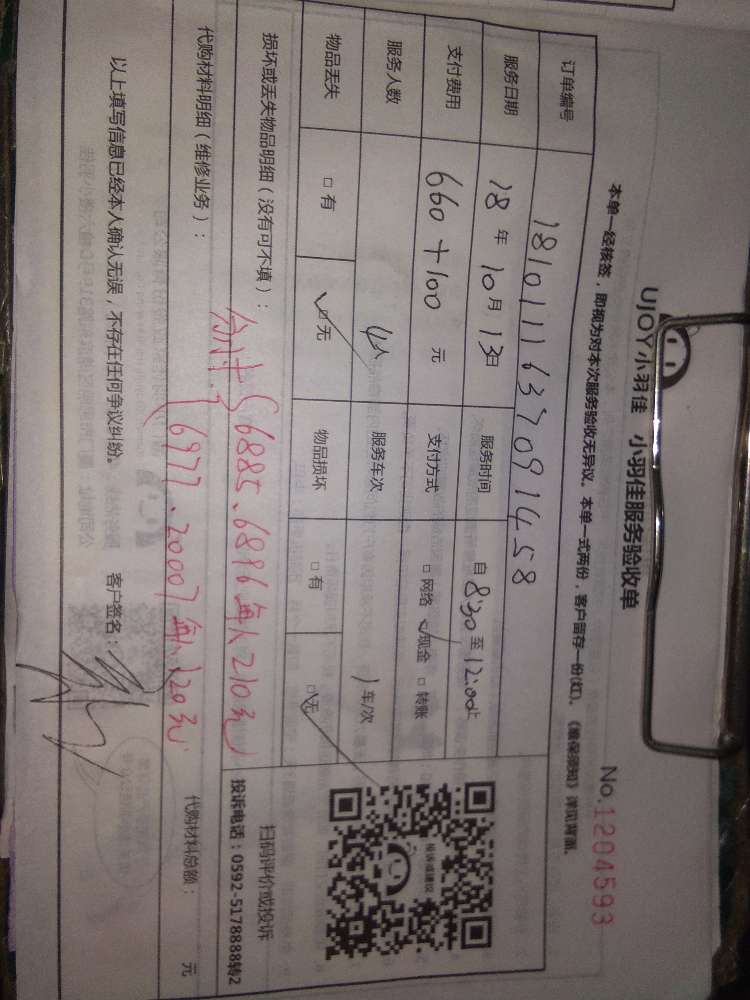 UJOY小羽佳 小羽佳服务验收单
No.1204593
本单一经核签，即视为对本次服务验收无异议。本单一式两份，客户留存一份(红)。《维保须知》详见背面。
订单编号 1810111637091458
服务日期 18年10月13日 服务时间 自8:30至12:00止
支付费用 660+100 元 支付方式 □网络 ☑现金 □转账
服务人数 4人 服务车次 1车/次
物品丢失 □有 ☑无 物品损坏 □有 ☑无
损坏或丢失物品明细（没有可不填）：
合计：
6885.6896每人210元
6977.20007每人120元
代购材料明细（维修业务）：
代购材料总额： 元
投诉或建议
扫码评价或投诉
投诉电话：0592-5178888转2
以上填写信息已经本人确认无误，不存在任何争议纠纷。 客户签名：